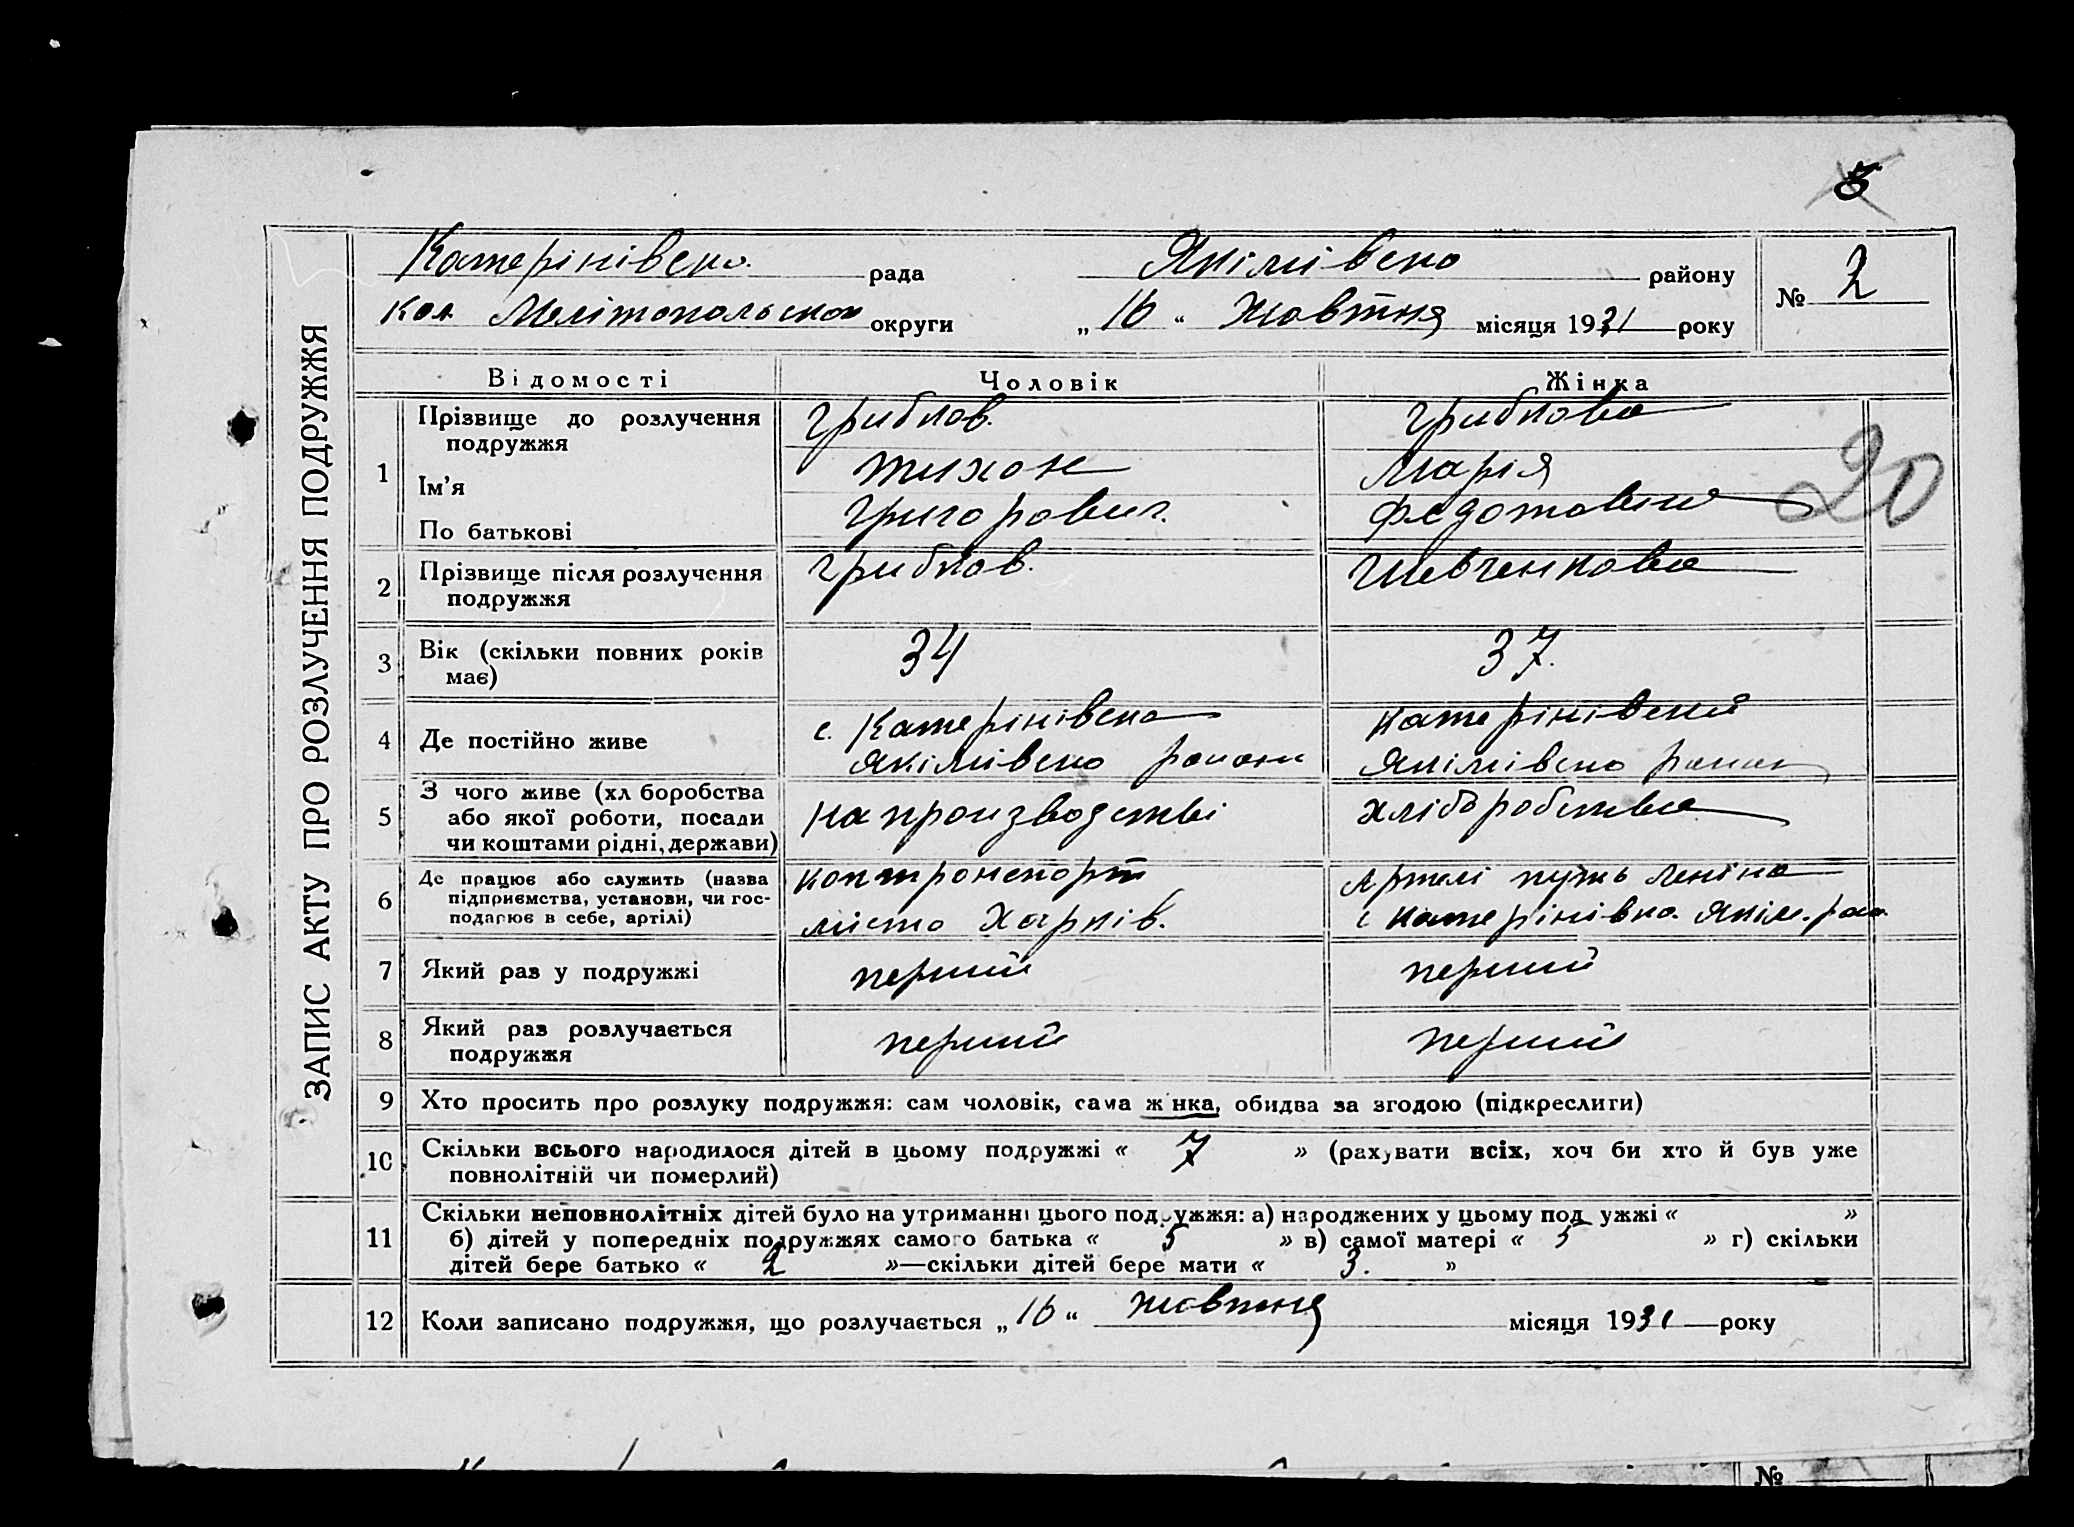 5
ЗАПИС АКТУ ПРО РОЗЛУЧЕННЯ ПОДРУЖЖЯ
Катерінівська рада Якімівсько району
кол. Мелітопольської округи „16“ Жовтня місяця 1931 року
№ 2
Відомості Чоловік Жінка
1 Прізвище до розлучення подружжя Грибков. Грибкова
Ім'я Тихон Марія
По батькові Григорович. Федотовна
20
2 Прізвище після розлучення подружжя Грибков. Шевченкова
3 Вік (скільки повних років має) 34 37.
4 Де постійно живе с. Катерінівска Якімівско району Катерінівский Якімівско район
5 З чого живе (хл боробства або якої роботи, посади чи коштами рідні, держави) на производстві хлібробства
6 Де працює або служить (назва підприємства, установи, чи господарює в себе, артілі) місто Харків. Артелі путь Леніна с Катерінівка Якім. рай.
7 Який раз у подружжі перший перший
8 Який раз розлучається подружжя перший перший
9 Хто просить про розлуку подружжя: сам чоловік, сама жінка, обидва за згодою (підкреслити)
10 Скільки всього народилося дітей в цьому подружжі « 7 » (рахувати всіх, хоч би хто й був уже
повнолітній чи померлий)
11 Скільки неповнолітніх дітей було на утриманні цього подружжя: а) народжених у цьому подружжі « »
б) дітей у попередніх подружжях самого батька « 5 » в) самої матері « 5 » г) скільки
дітей бере батько « 2 »—скільки дітей бере мати « 3. »
12 Коли записано подружжя, що розлучається „16“ жовтня місяця 1931 року
№